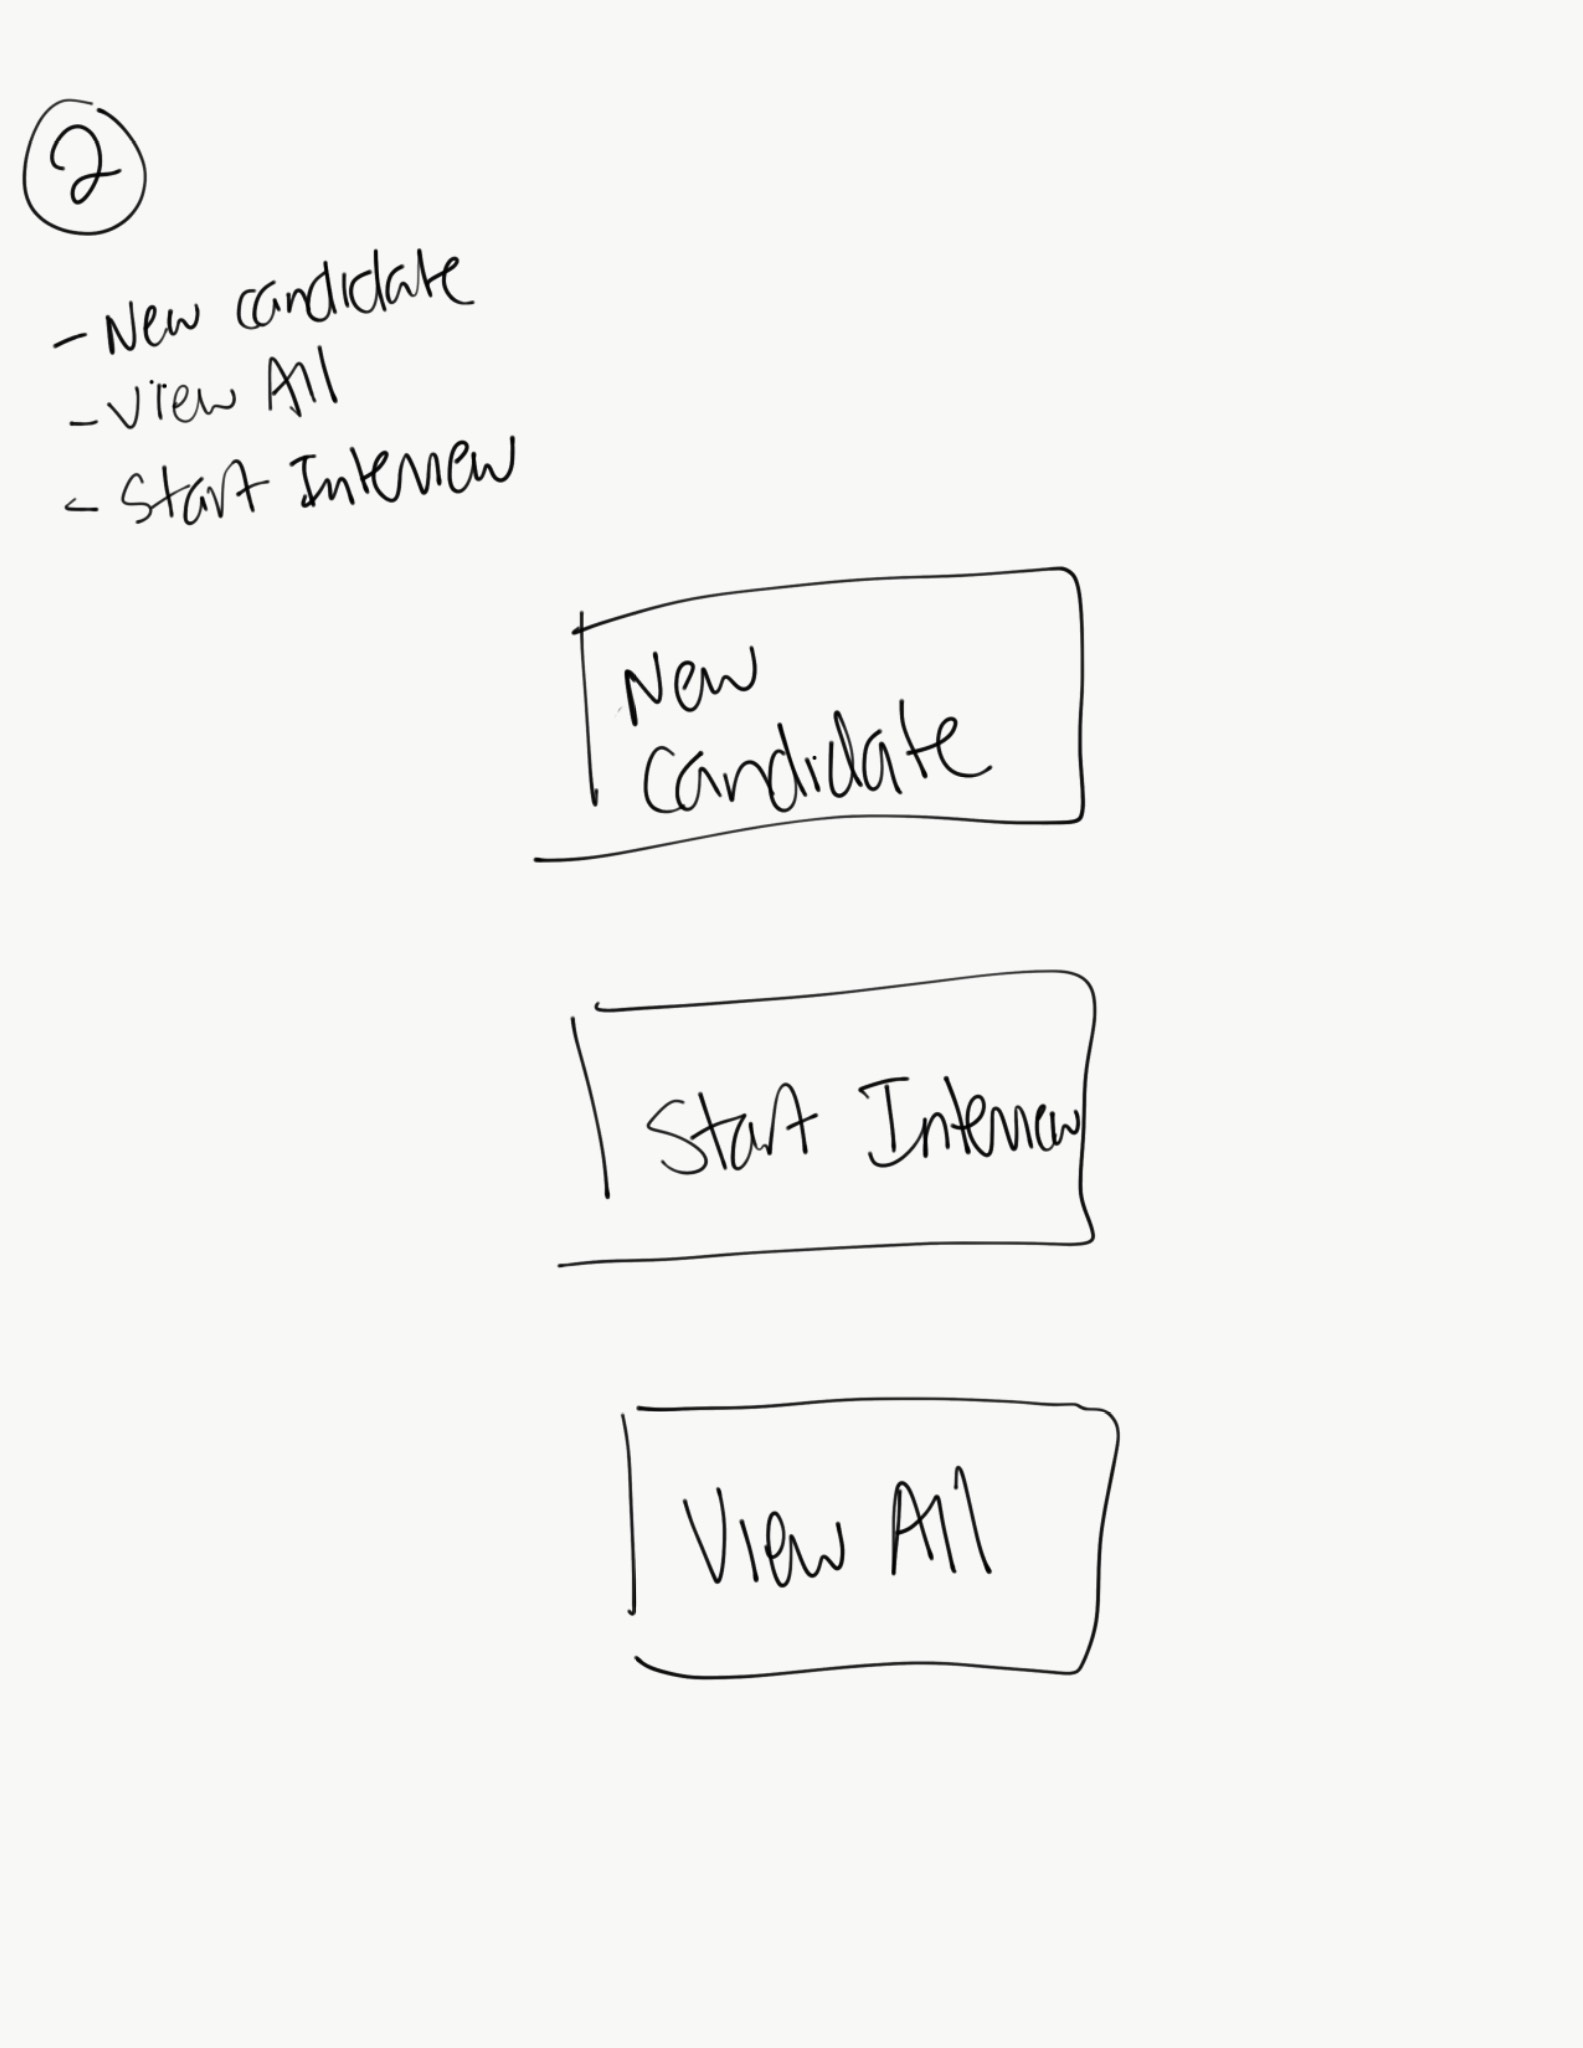 2
- New candidate
- View All
- Start Interview
New
Candidate
Start Interview
View All